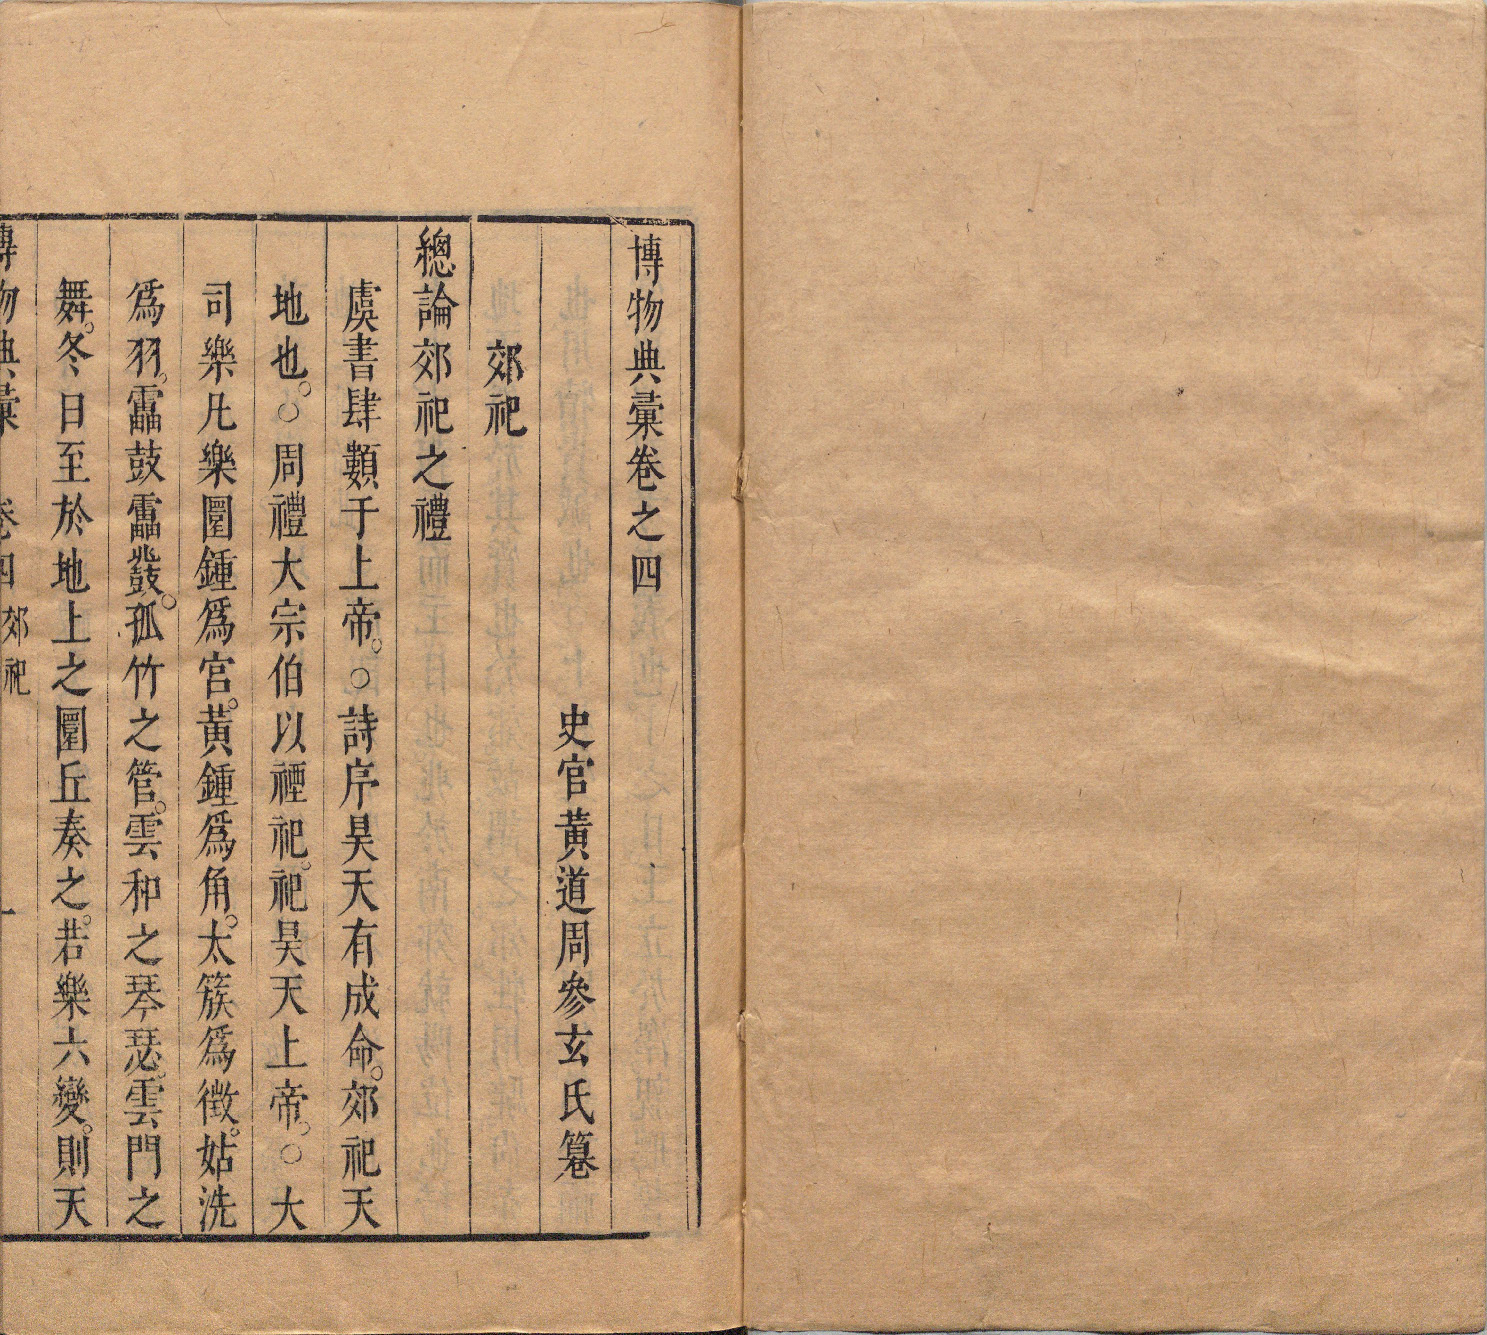 博物典彙卷之四
史官黃道周參玄氏簒
郊祀
總論郊祀之禮
虞書肆類于上帝。○詩序昊天有成命。郊祀天
地也。○周禮大宗伯以禋祀。祀昊天上帝。○大
司樂凡樂圜鍾爲宮。黃鍾爲角。太簇爲徵。姑洗
爲羽。靁鼓靁鼗。孤竹之管。雲和之琴瑟。雲門之
舞。冬日至於地上之圜丘奏之。若樂六變。則天
博物典彙 卷四 郊祀 一